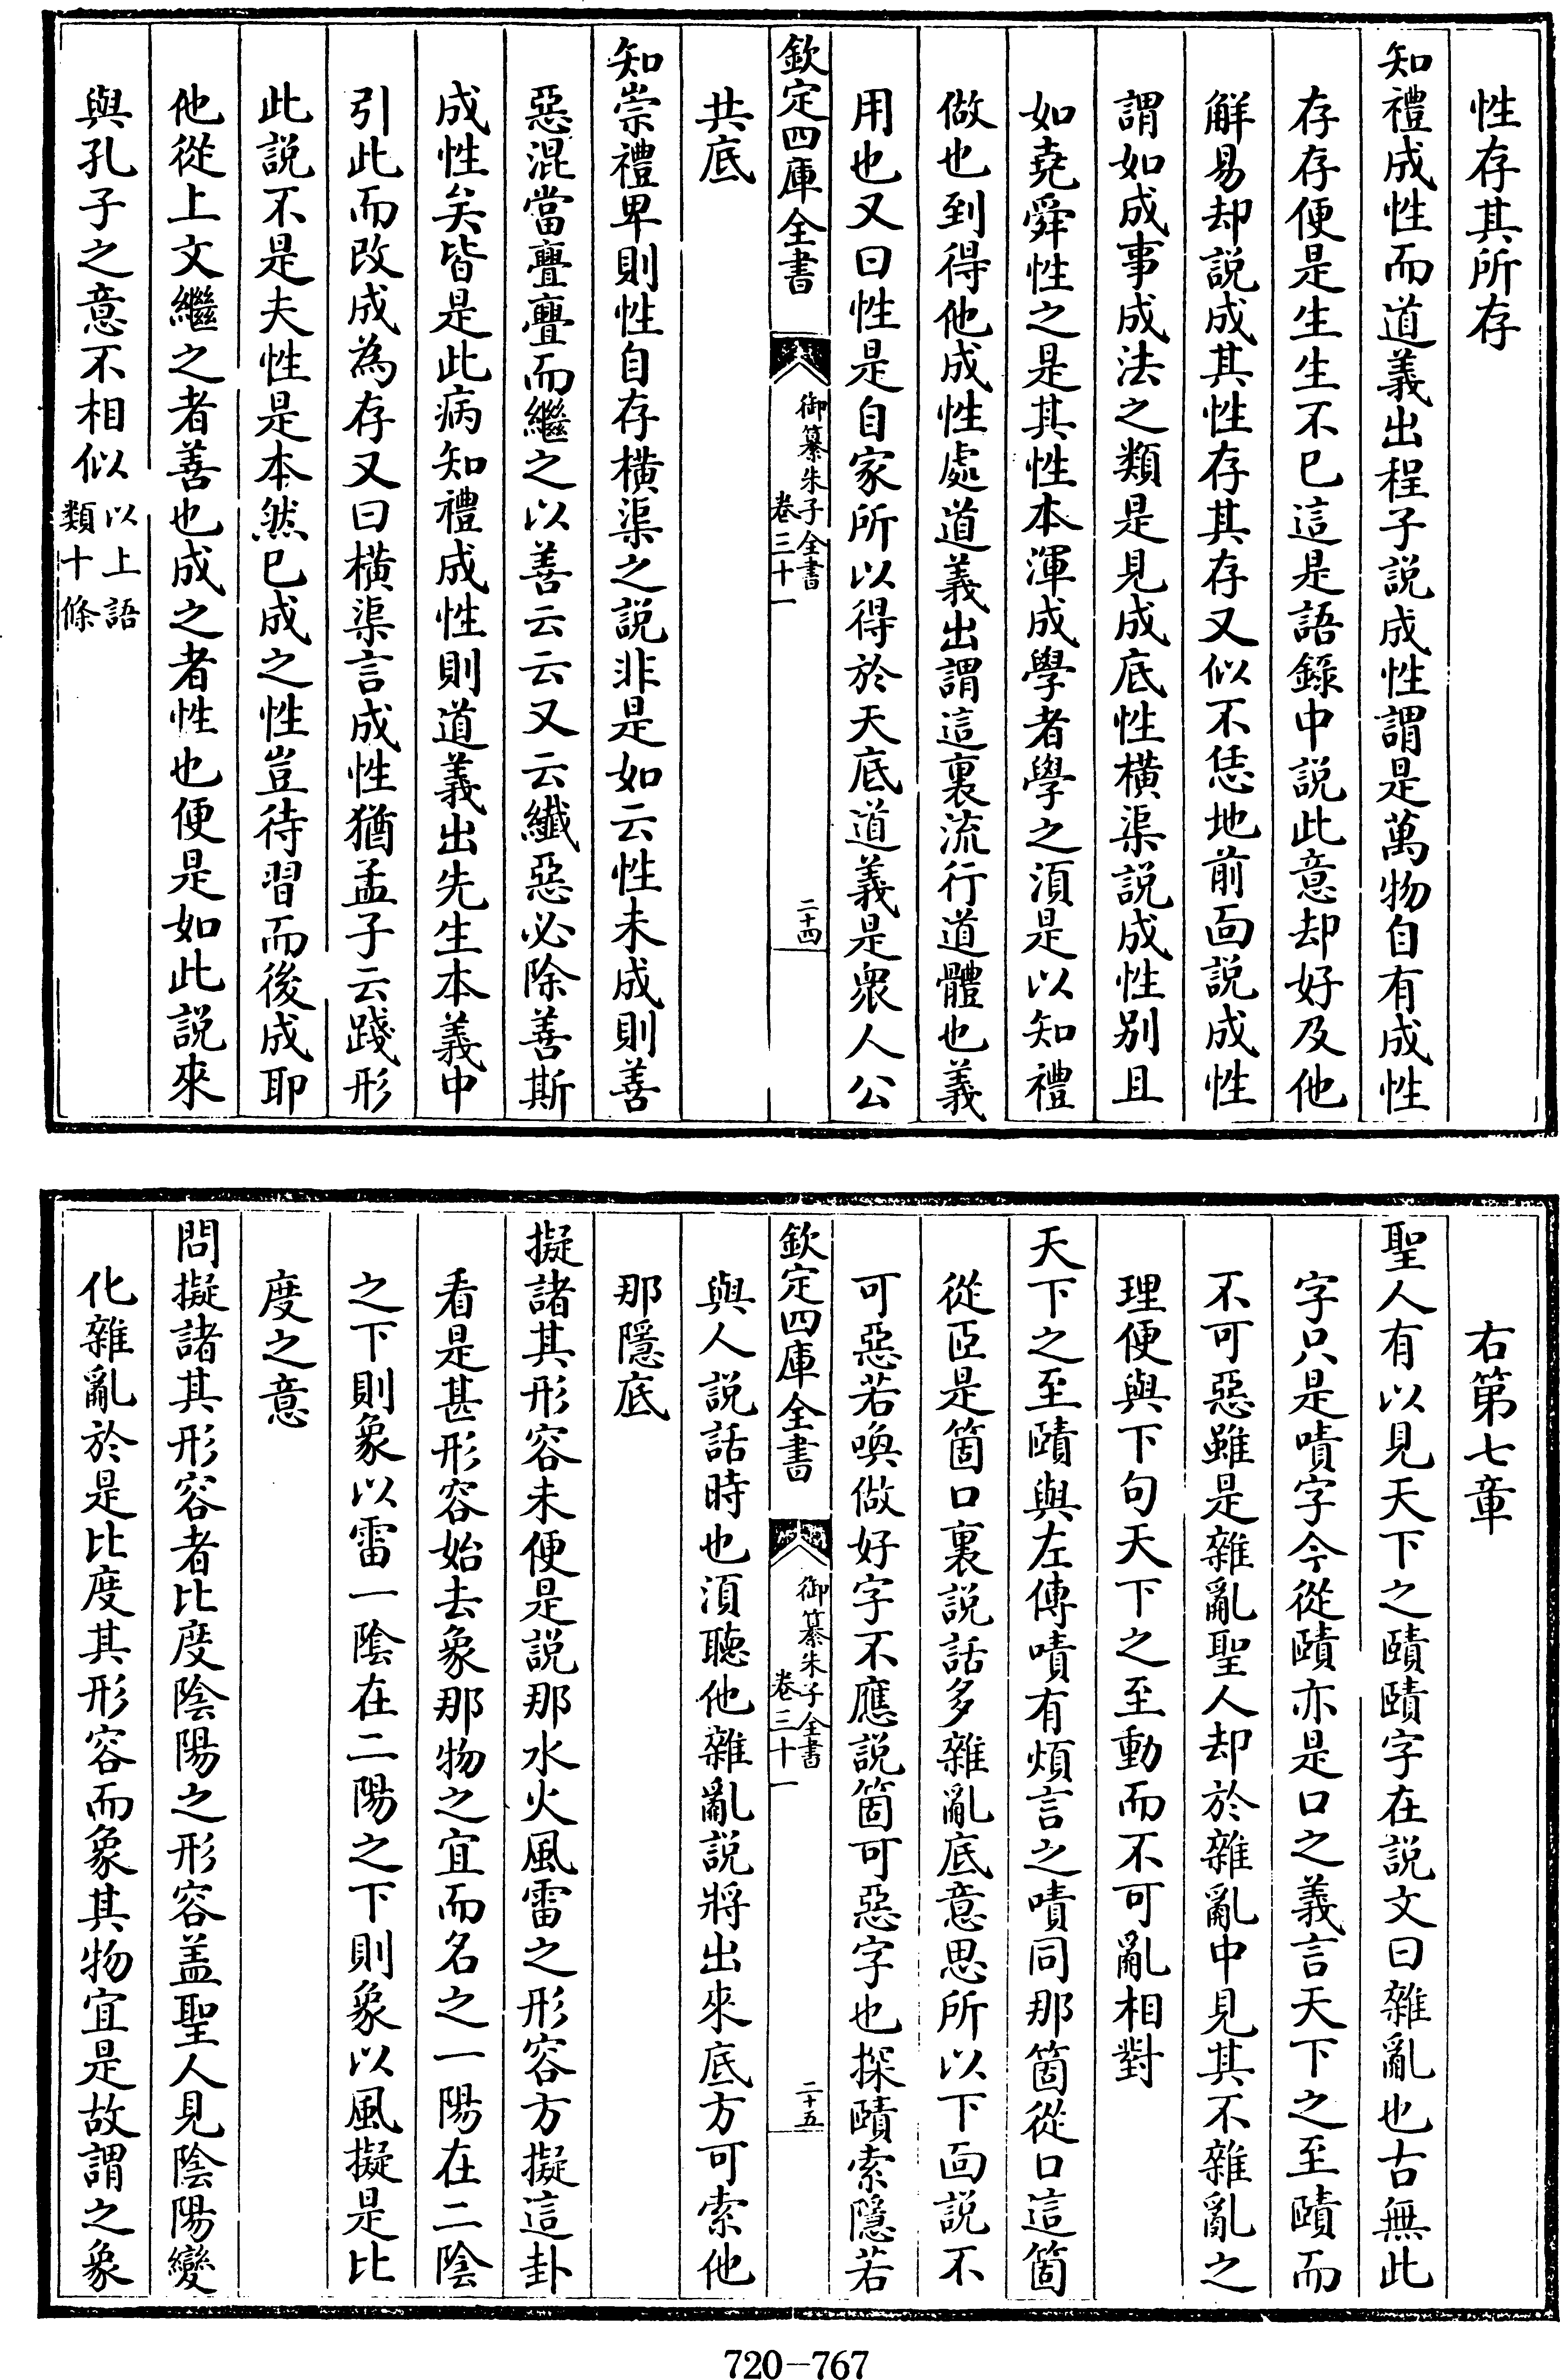 性存其所存
知禮成性而道義出程子説成性謂是萬物自有成性
存存便是生生不已這是語錄中説此意却好及他
解易却説成其性存其存又似不恁地前面説成性
謂如成事成法之類是見成底性橫渠説成性别且
如堯舜性之是其性本渾成學者學之須是以知禮
做也到得他成性處道義出謂這裏流行道體也義
用也又曰性是自家所以得於天底道義是衆人公
共底
欽定四庫全書
御纂朱子全書
卷三十一
二十四
知崇禮卑則性自存橫渠之説非是如云性未成則善
惡混當亹亹而繼之以善云云又云纖惡必除善斯
成性矣皆是此病知禮成性則道義出先生本義中
引此而改成為存又曰橫渠言成性猶孟子云踐形
此説不是夫性是本然已成之性豈待習而後成耶
他從上文繼之者善也成之者性也便是如此説來
與孔子之意不相似以上語類十條
右第七章
聖人有以見天下之賾賾字在説文曰雜亂也古無此
字只是嘖字今從賾亦是口之義言天下之至賾而
不可惡雖是雜亂聖人却於雜亂中見其不雜亂之
理便與下句天下之至動而不可亂相對
天下之至賾與左傳嘖有煩言之嘖同那箇從口這箇
從𦣞是箇口裏説話多雜亂底意思所以下面説不
可惡若喚做好字不應説箇可惡字也探賾索隱若
欽定四庫全書
御纂朱子全書
卷三十一
二十五
與人説話時也須聽他雜亂説將出來底方可索他
那隱底
擬諸其形容未便是説那水火風雷之形容方擬這卦
看是甚形容始去象那物之宜而名之一陽在二陰
之下則象以雷一陰在二陽之下則象以風擬是比
度之意
問擬諸其形容者比度陰陽之形容盖聖人見陰陽變
化雜亂於是比度其形容而象其物宜是故謂之象
720-767